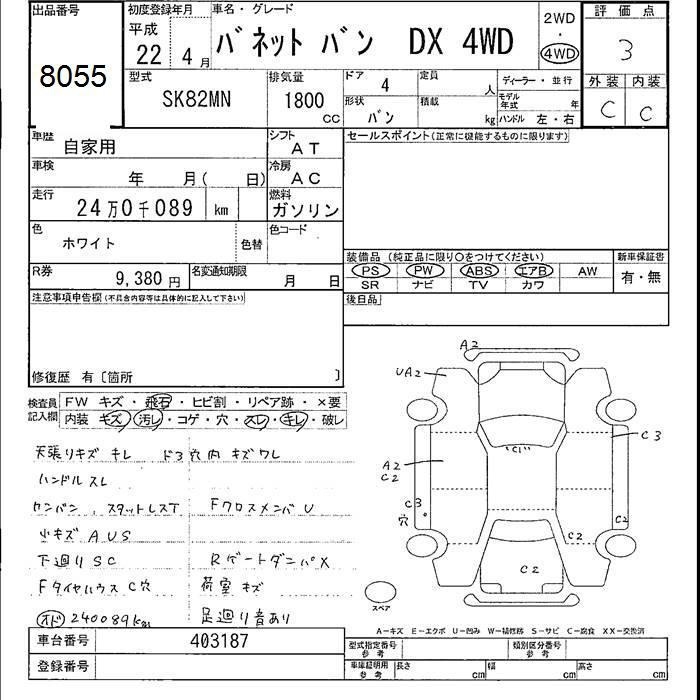 出品番号 初度登録年月 車名・グレード 2WD 評価点
8055 平成 22 4月 バネット バン DX 4WD 4WD 3
型式 排気量 ドア 4 定員 人 ディーラー・並行 外装 内装
SK82MN 1800 CC 形状 バン 積載 kg モデル年式 年 C C
ハンドル 左・右
車歴 自家用 シフト AT セールスポイント(正常に機能するものに限ります)
車検 年 月( 日) 冷房 AC
走行 24万0千089 km 燃料 ガソリン
色 ホワイト 色替 色コード
装備品(純正品に限り○をつけてください) 新車保証書
R券 9,380円 名変通知期限 月 日 PS PW ABS エアB AW 有・無
SR ナビ TV カワ
注意事項申告欄(不具合内容等は具体的に記入して下さい) 後日品
修復歴 有〔箇所 〕
検査員記入欄 FW キズ・飛石・ヒビ割・リペア跡・×要
内装 キズ・汚レ・コゲ・穴・スレ・キレ・破レ
天張りキズ キレ ド3 穴 内 キズ ワレ
ハンドル スレ
センバン、スタットレスT FクロスメンバU
小キズ AUS
下廻り SC RゲートダンパX
Fタイヤハウス C穴 荷室 キズ
オド 240089km 足廻り音あり
A2
UA2
"C1"
C3
A2
C2
C3
穴
C2
C2
C2
スペア
A−キズ E−エクボ U−凹み W−補修跡 S−サビ C−腐食 XX−交換済
車台番号 403187 型式指定番号 参考 類別区分番号 参考
登録番号 車庫証明用 参考 長さ cm 幅 cm 高さ cm